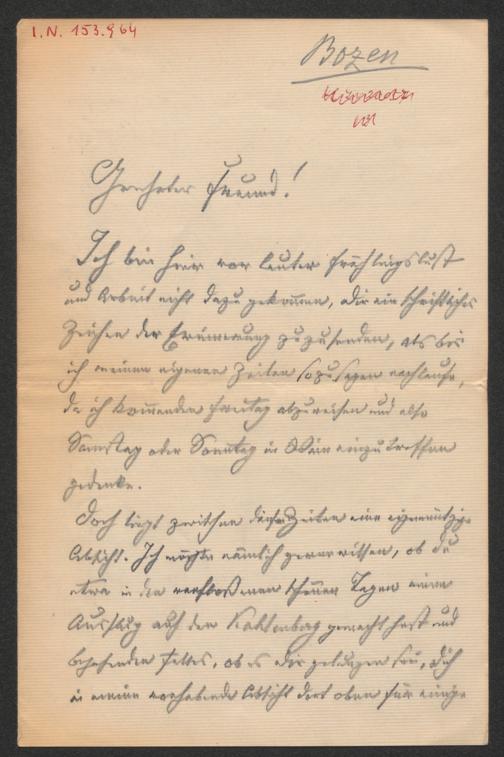 I. N. 153.964
Bozen
Geehrter Freund!
Ich bin hier vor lauter Frühlingslust
und Arbeit nicht dazu gekommen, Dir ein schriftliches
Zeichen der Erinnerung zuzusenden, als bis
ich meinen eigenen Zeilen sozusagen nachlaufe,
da ich kommenden Freitag abzureisen und also
Samstag oder Sonntag in Wien einzutreffen
gedenke.
Doch liegt zwischen diesen Zeilen eine eigennützige
Absicht. Ich möchte nämlich gerne wissen, ob Du
etwa in den verflossenen schönen Tagen einen
Ausflug auf den Kahlenberg gemacht hast und
bejahenden Falles, ob es Dir gelungen sei, Dich
in meine vorhabende Absicht dort oben für einige